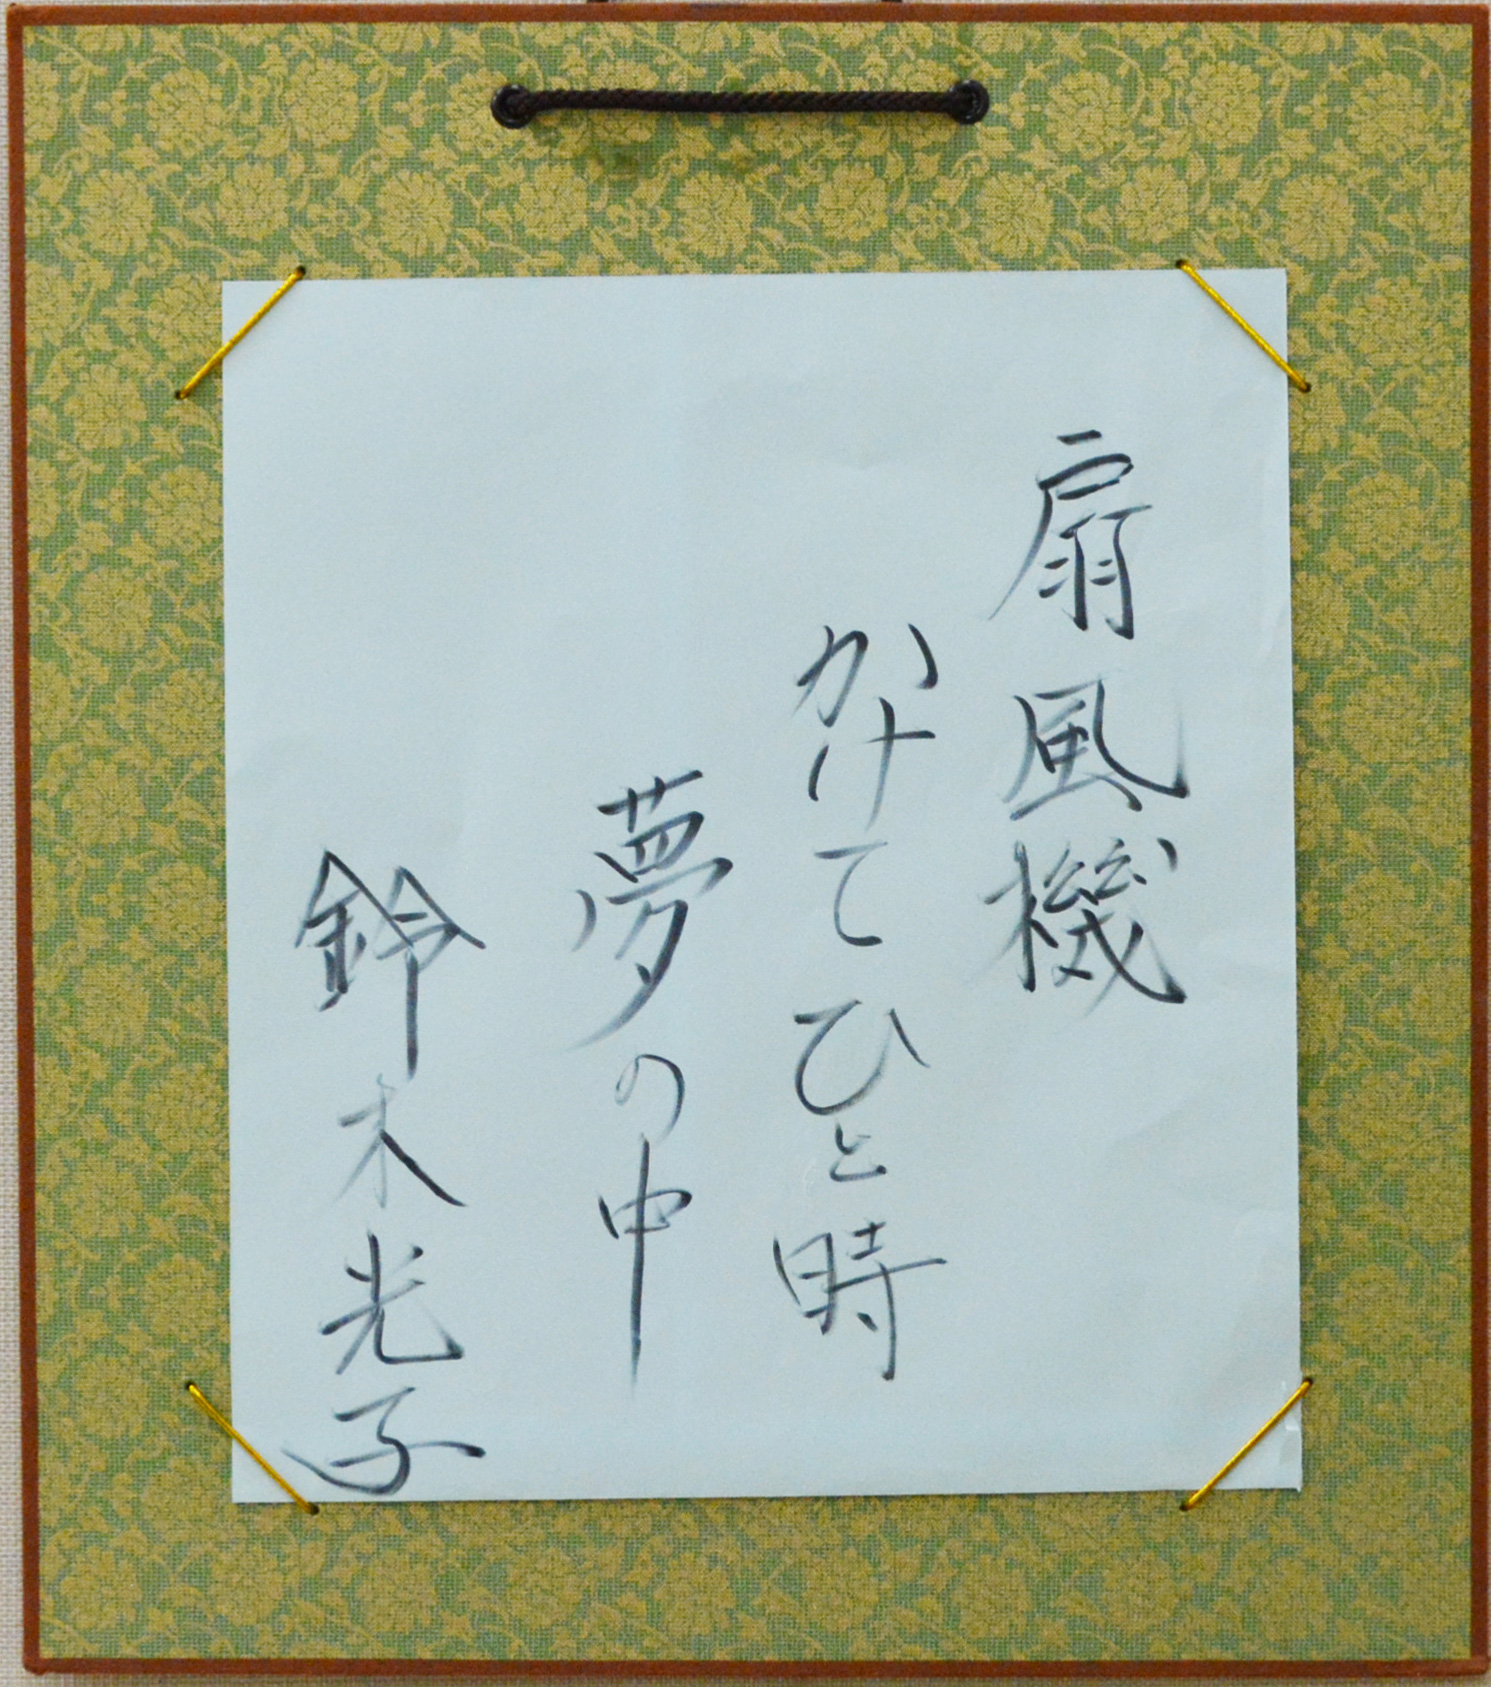 扇風機
かけてひと時
夢の中
鈴木光子